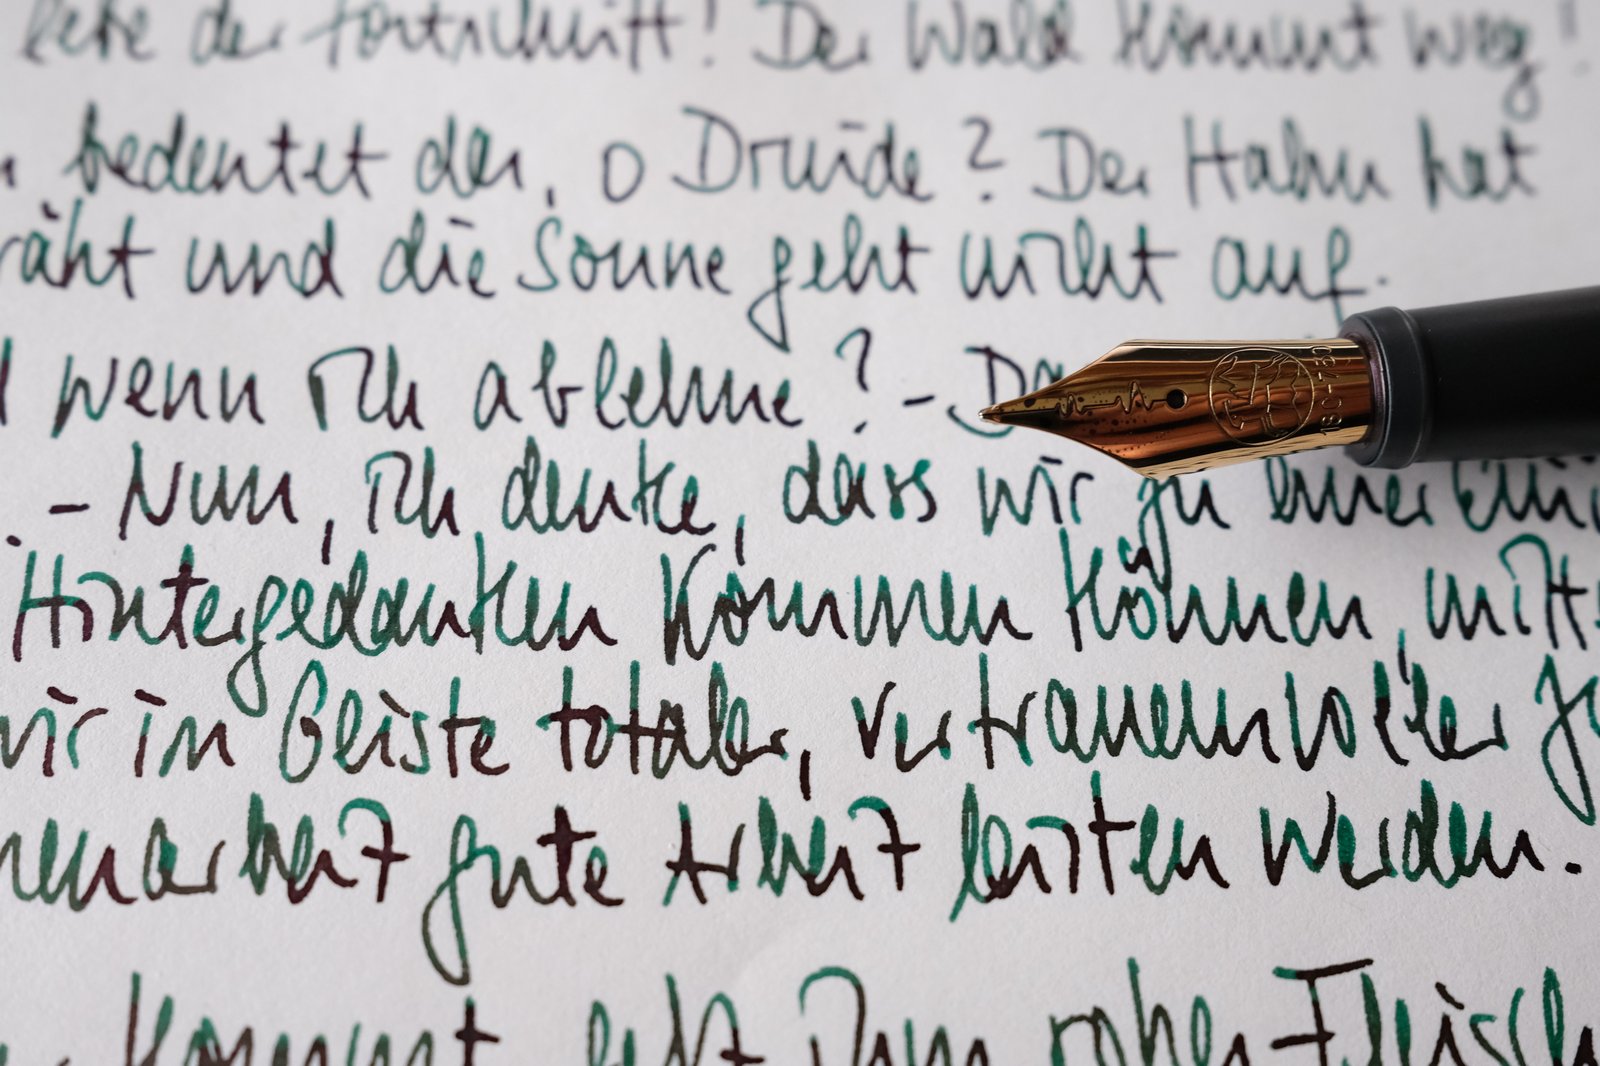 lebe der Fortschritt! Der Wald kommt weg!
bedeutet der, o Druide? Der Hahn hat
räht und die Sonne geht nicht auf.
wenn ich ablehne? -
- Nun, ich denke, dass wir zu einer
Hintergedanken kommen können, mitt
wir in Geiste totaler, vertrauensvoller
menarbeit gute Arbeit leisten werden.
kommt jetzt zum rohen Fleisch